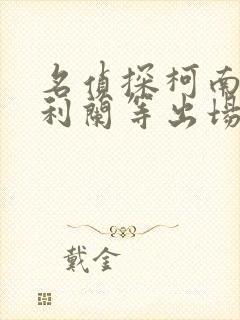 名偵探柯南
利蘭等出場
戴金